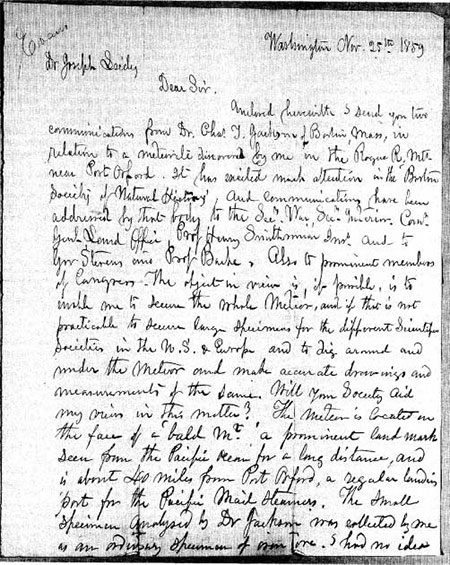 Evans
Washington Nov. 25th 1859
Dr Joseph Leidy
Dear Sir.
Enclosed herewith I send you two
communications from Dr. Chas T. Jackson of Boston Mass, in
relation to a meteorite discovered by me in the Rogue R. Mts
near Port Orford. It has excited much attention in the Boston
Society of Natural History And communications have been
addressed by that body to the Secy War, Secy Interior, Comr
Genl Land Office Prof Henry Smithsonian Inst and to
Gov Stevens and Prof Bache, Also to prominent members
of Congress. The object in view is, if possible, is to
enable me to secure the whole Meteor, and if this is not
practicable to secure large specimens for the different Scientific
Societies in the U.S. & Europe and to dig around and
under the meteor and make accurate drawings and
measurements of the same. Will your Society Aid
my views in this matter? The Meteor is located on
the face of a "bald Mt" a prominent land mark
seen from the Pacific Ocean for a long distance, and
is about 40 miles from Port Orford, a regular landing
port for the Pacific Mail Steamers. The small
specimen analysed by Dr Jackson was collected by me
as an ordinary specimen of iron ore. I had no idea